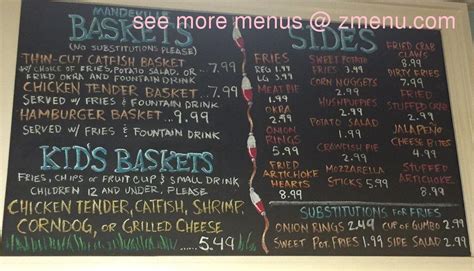 see more menus @ zmenu.com
MANDEVILLE
BASKETS
(NO SUBSTITUTIONS PLEASE)
THIN-CUT CATFISH BASKET
W/ CHOICE OF FRIES, POTATO SALAD, OR ...7.99
FRIED OKRA AND FOUNTAIN DRINK
CHICKEN TENDER BASKET ..7.99
SERVED W/ FRIES & FOUNTAIN DRINK
HAMBURGER BASKET ...9.99
SERVED W/ FRIES & FOUNTAIN DRINK
KID'S BASKETS
FRIES, CHIPS OR FRUIT CUP & SMALL DRINK
CHILDREN 12 AND UNDER, PLEASE
CHICKEN TENDER, CATFISH, SHRIMP,
CORNDOG, OR GRILLED CHEESE
...5.49
SIDES
FRIES
REG 1.99
LG 3.99
OKRA
2.99
ONION
RINGS
5.49
FRIED
ARTICHOKE
HEARTS
8.99
SWEET POTATO
FRIES 3.99
CORN NUGGETS
2.99
HUSHPUPPIES
2.99
POTATO SALAD
1.99
CRAWFISH PIE
2.99
MOZZARELLA
STICKS 5.99
FRIED CRAB
CLAWS
8.99
DIRTY FRIES
5.99
FRIED
STUFFED CRAB
2.99
JALAPEÑO
CHEESE BITES
4.99
STUFFED
ARTICHOKE
8.99
SUBSTITUTIONS FOR FRIES
ONION RINGS 2.49 CUP OF GUMBO 2.99
SWEET POT. FRIES 1.99 SIDE SALAD 2.99